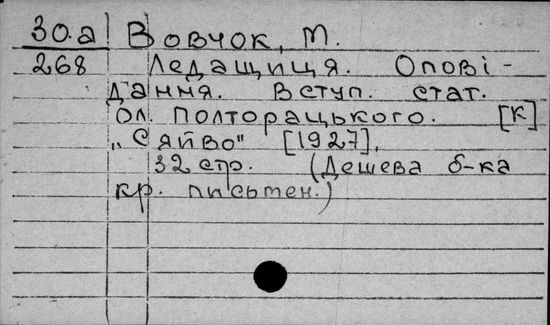 30.а Вовчок, М.
268 Ледащиця. Опові-
дання. Вступ. стат.
Ол. Полторацького. [К]
„Сяйво" [1927],
32 стр. (Дешева б-ка
кр. письмен.)